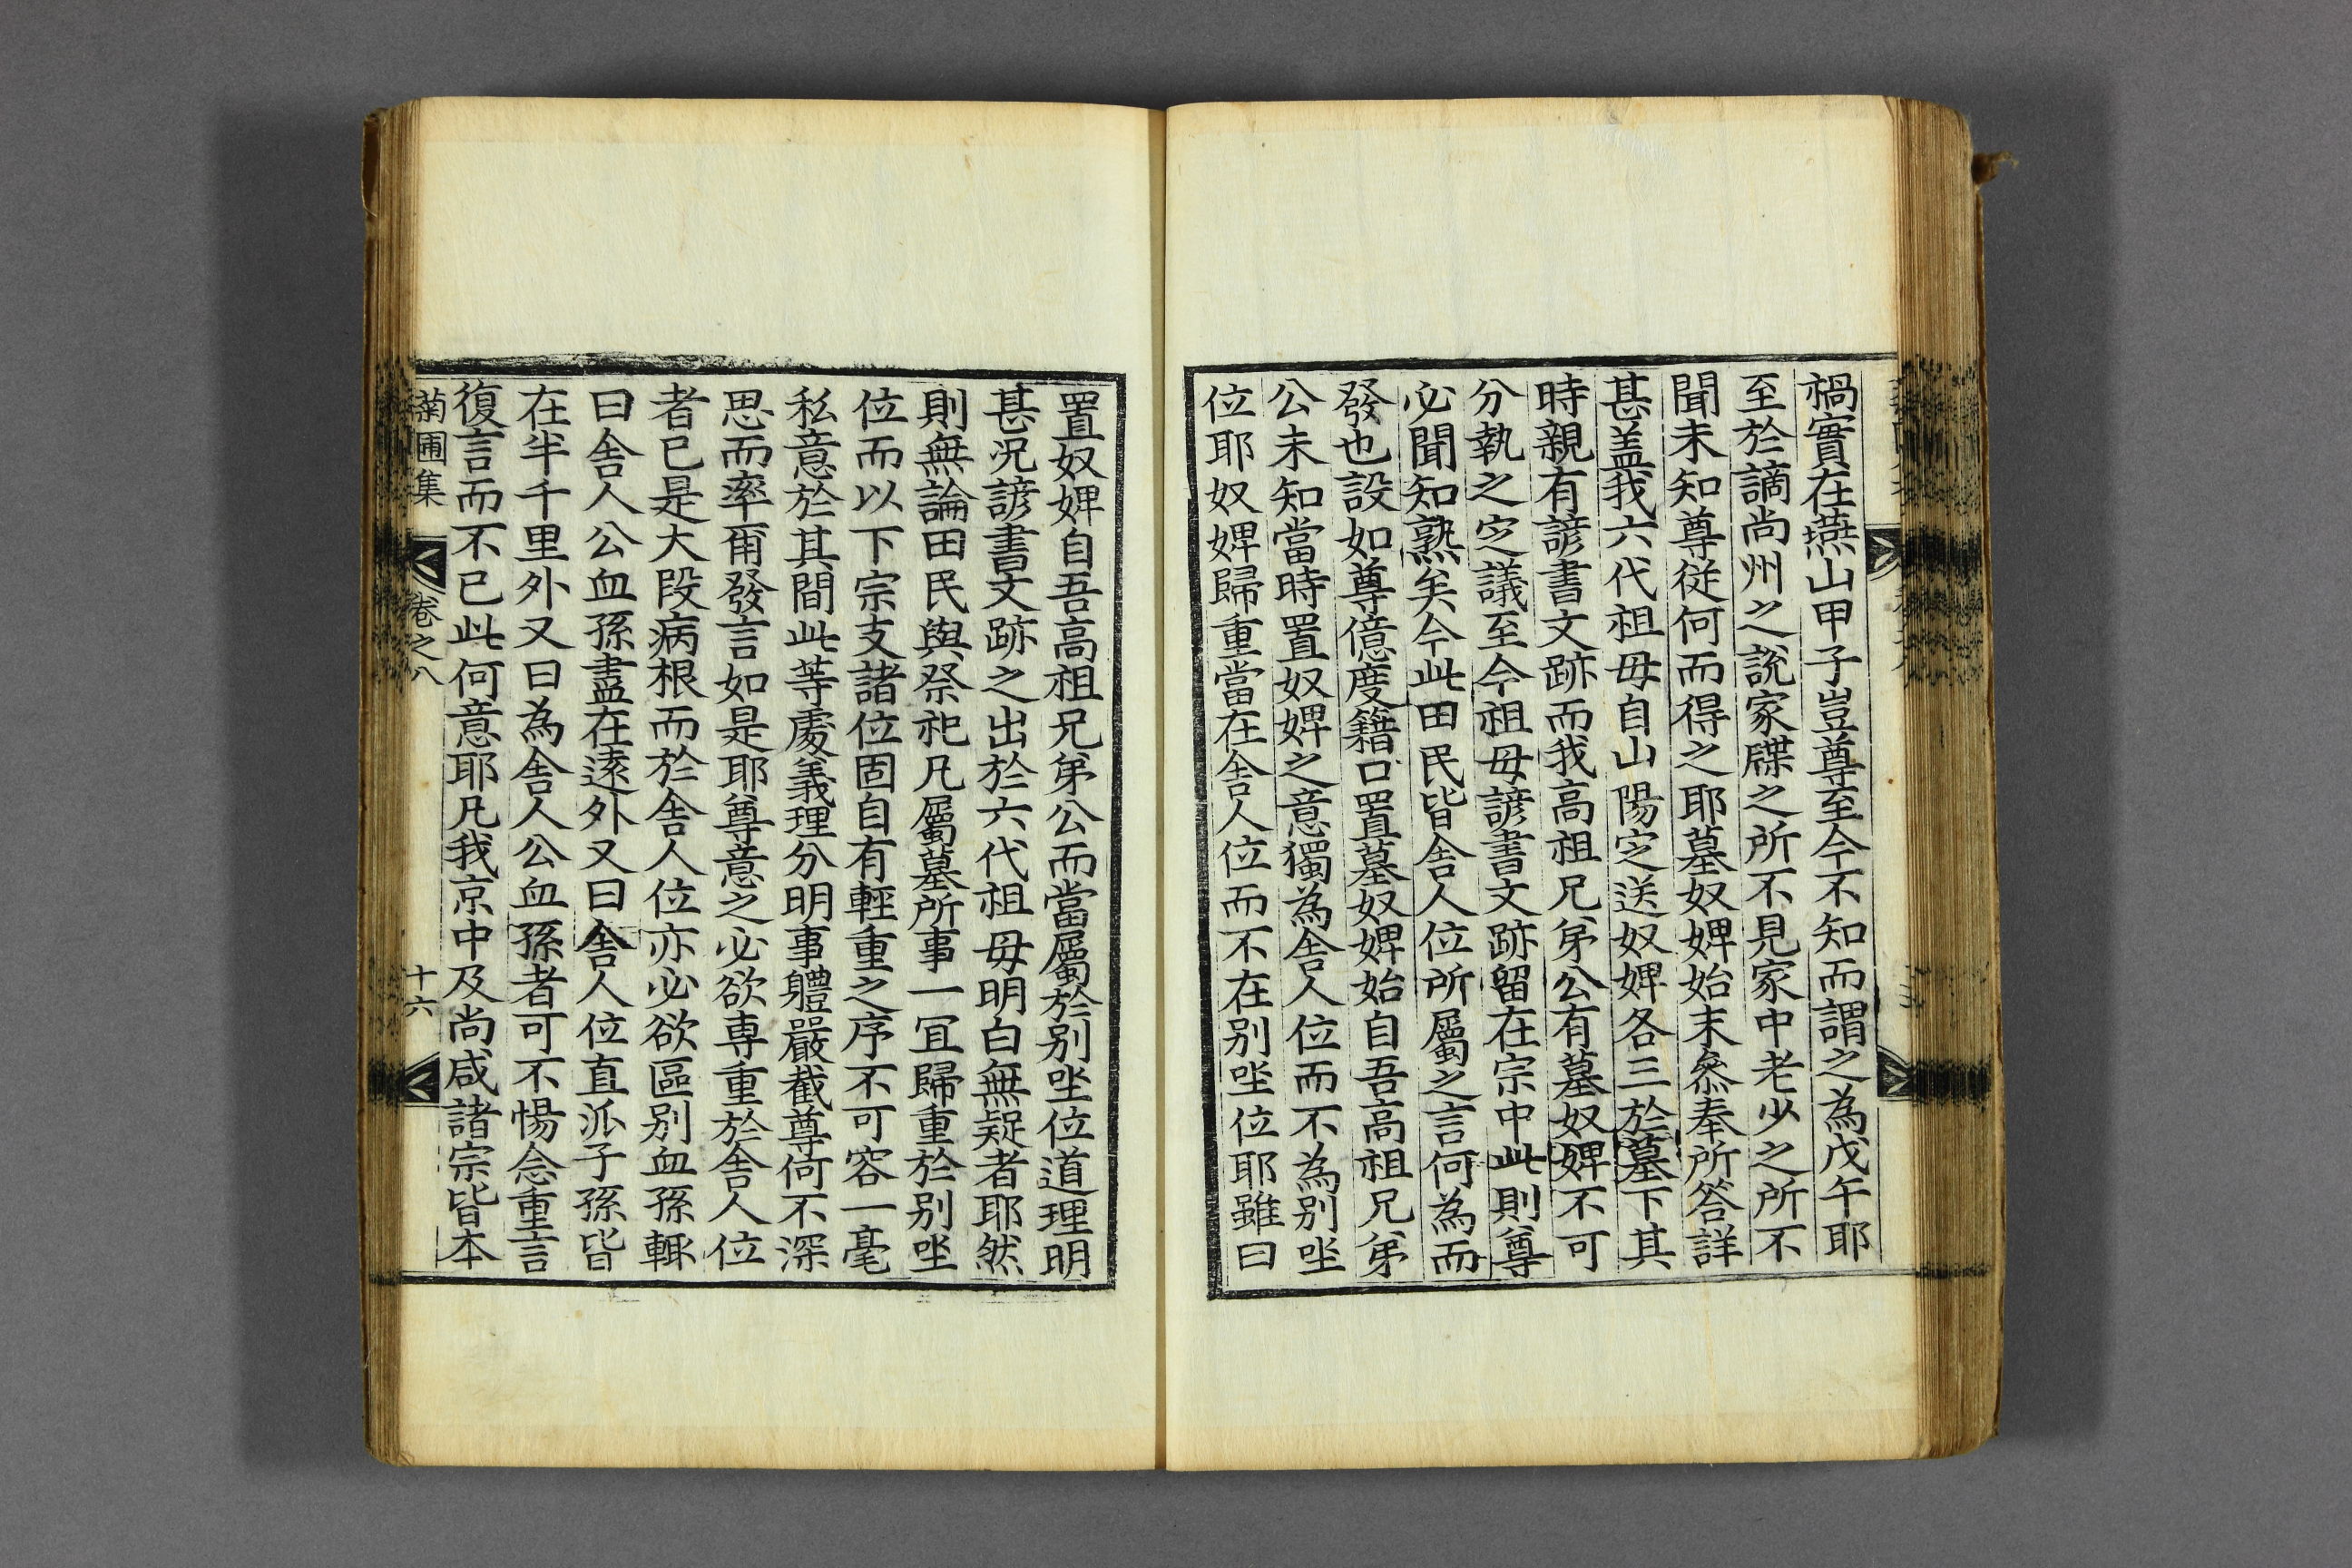 禍實在燕山甲子豈尊至今不知而謂之為戊午耶
至於謫尚州之說家牒之所不見家中老少之所不
聞未知尊從何而得之耶墓奴婢始末叅奉所答詳
甚盖我六代祖母自山陽㝎送奴婢各三於墓下其
時親有諺書文跡而我高祖兄弟公有墓奴婢不可
分執之㝎議至今祖母諺書文跡留在宗中此則尊
必聞知熟矣今此田民皆舍人位所屬之言何為而
發也設如尊億度籍口置墓奴婢始自吾高祖兄弟
公未知當時置奴婢之意獨為舍人位而不為別坐
位耶奴婢歸重當在舍人位而不在別坐位耶雖曰
置奴婢自吾高祖兄弟公而當屬於別坐位道理明
甚况諺書文跡之出於六代祖母明白無疑者耶然
則無論田民與祭祀凡屬墓所事一冝歸重於別坐
位而以下宗支諸位固自有輕重之序不可容一毫
私意於其間此等處義理分明事軆嚴截尊何不深
思而率爾發言如是耶尊意之必欲專重於舍人位
者已是大段病根而於舍人位亦必欲區別血孫輒
曰舍人公血孫盡在遠外又曰舍人位直派子孫皆
在半千里外又曰為舍人公血孫者可不惕念重言
復言而不已此何意耶凡我京中及尚咸諸宗皆本
菊圃集 卷之八 十六